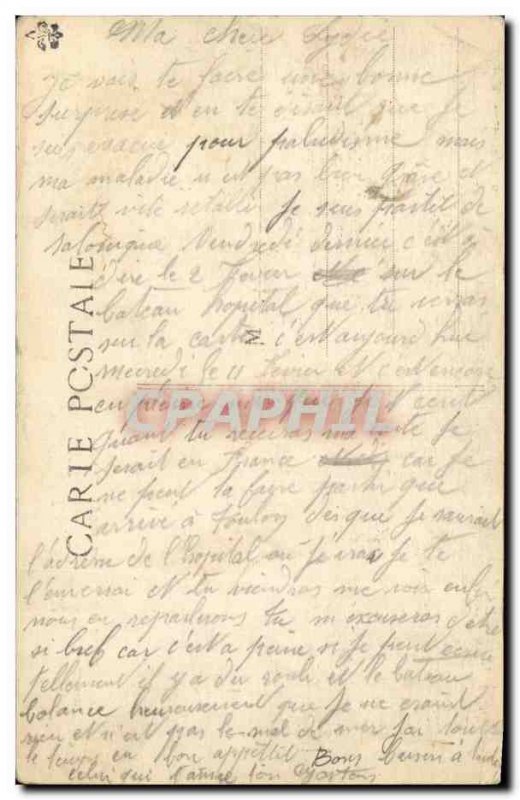 Ma chère Lydie
Je vais te faire une bonne
surprise et en te disant que je
suis evacue pour paludisme mais
ma maladie n est pas bien grave et
serait vite retabli Je suis partit de
Salonique Vendredi dernier c'est à
dire le 2 Fevrier sur le
bateau hopital que tu verras
sur la carte c'est aujourd hui
mercredi le Fevrier et c'est encore
en pleine mer que je t'ecrit
quant tu recevras ma carte je
serait en France car je
ne peut la faire partir que
arrivé à Toulon des que je saurait
l'adresse de l'hopital ou j'irai je te
l'enverrai et tu viendras me voir enfin
nous en reparlerons tu m'excuseras d'être
si bref car c'est a peine si je peut ecrire
tellement il y a du roulis et le bateau
balance heureusement que je ne craint
rien et n'ai pas le mal de mer j'ai tout
le temps un bon appetit Bons baisers à toute
celui qui t'aime ton Gaston
CARTE POSTALE
M
CPAPHIL